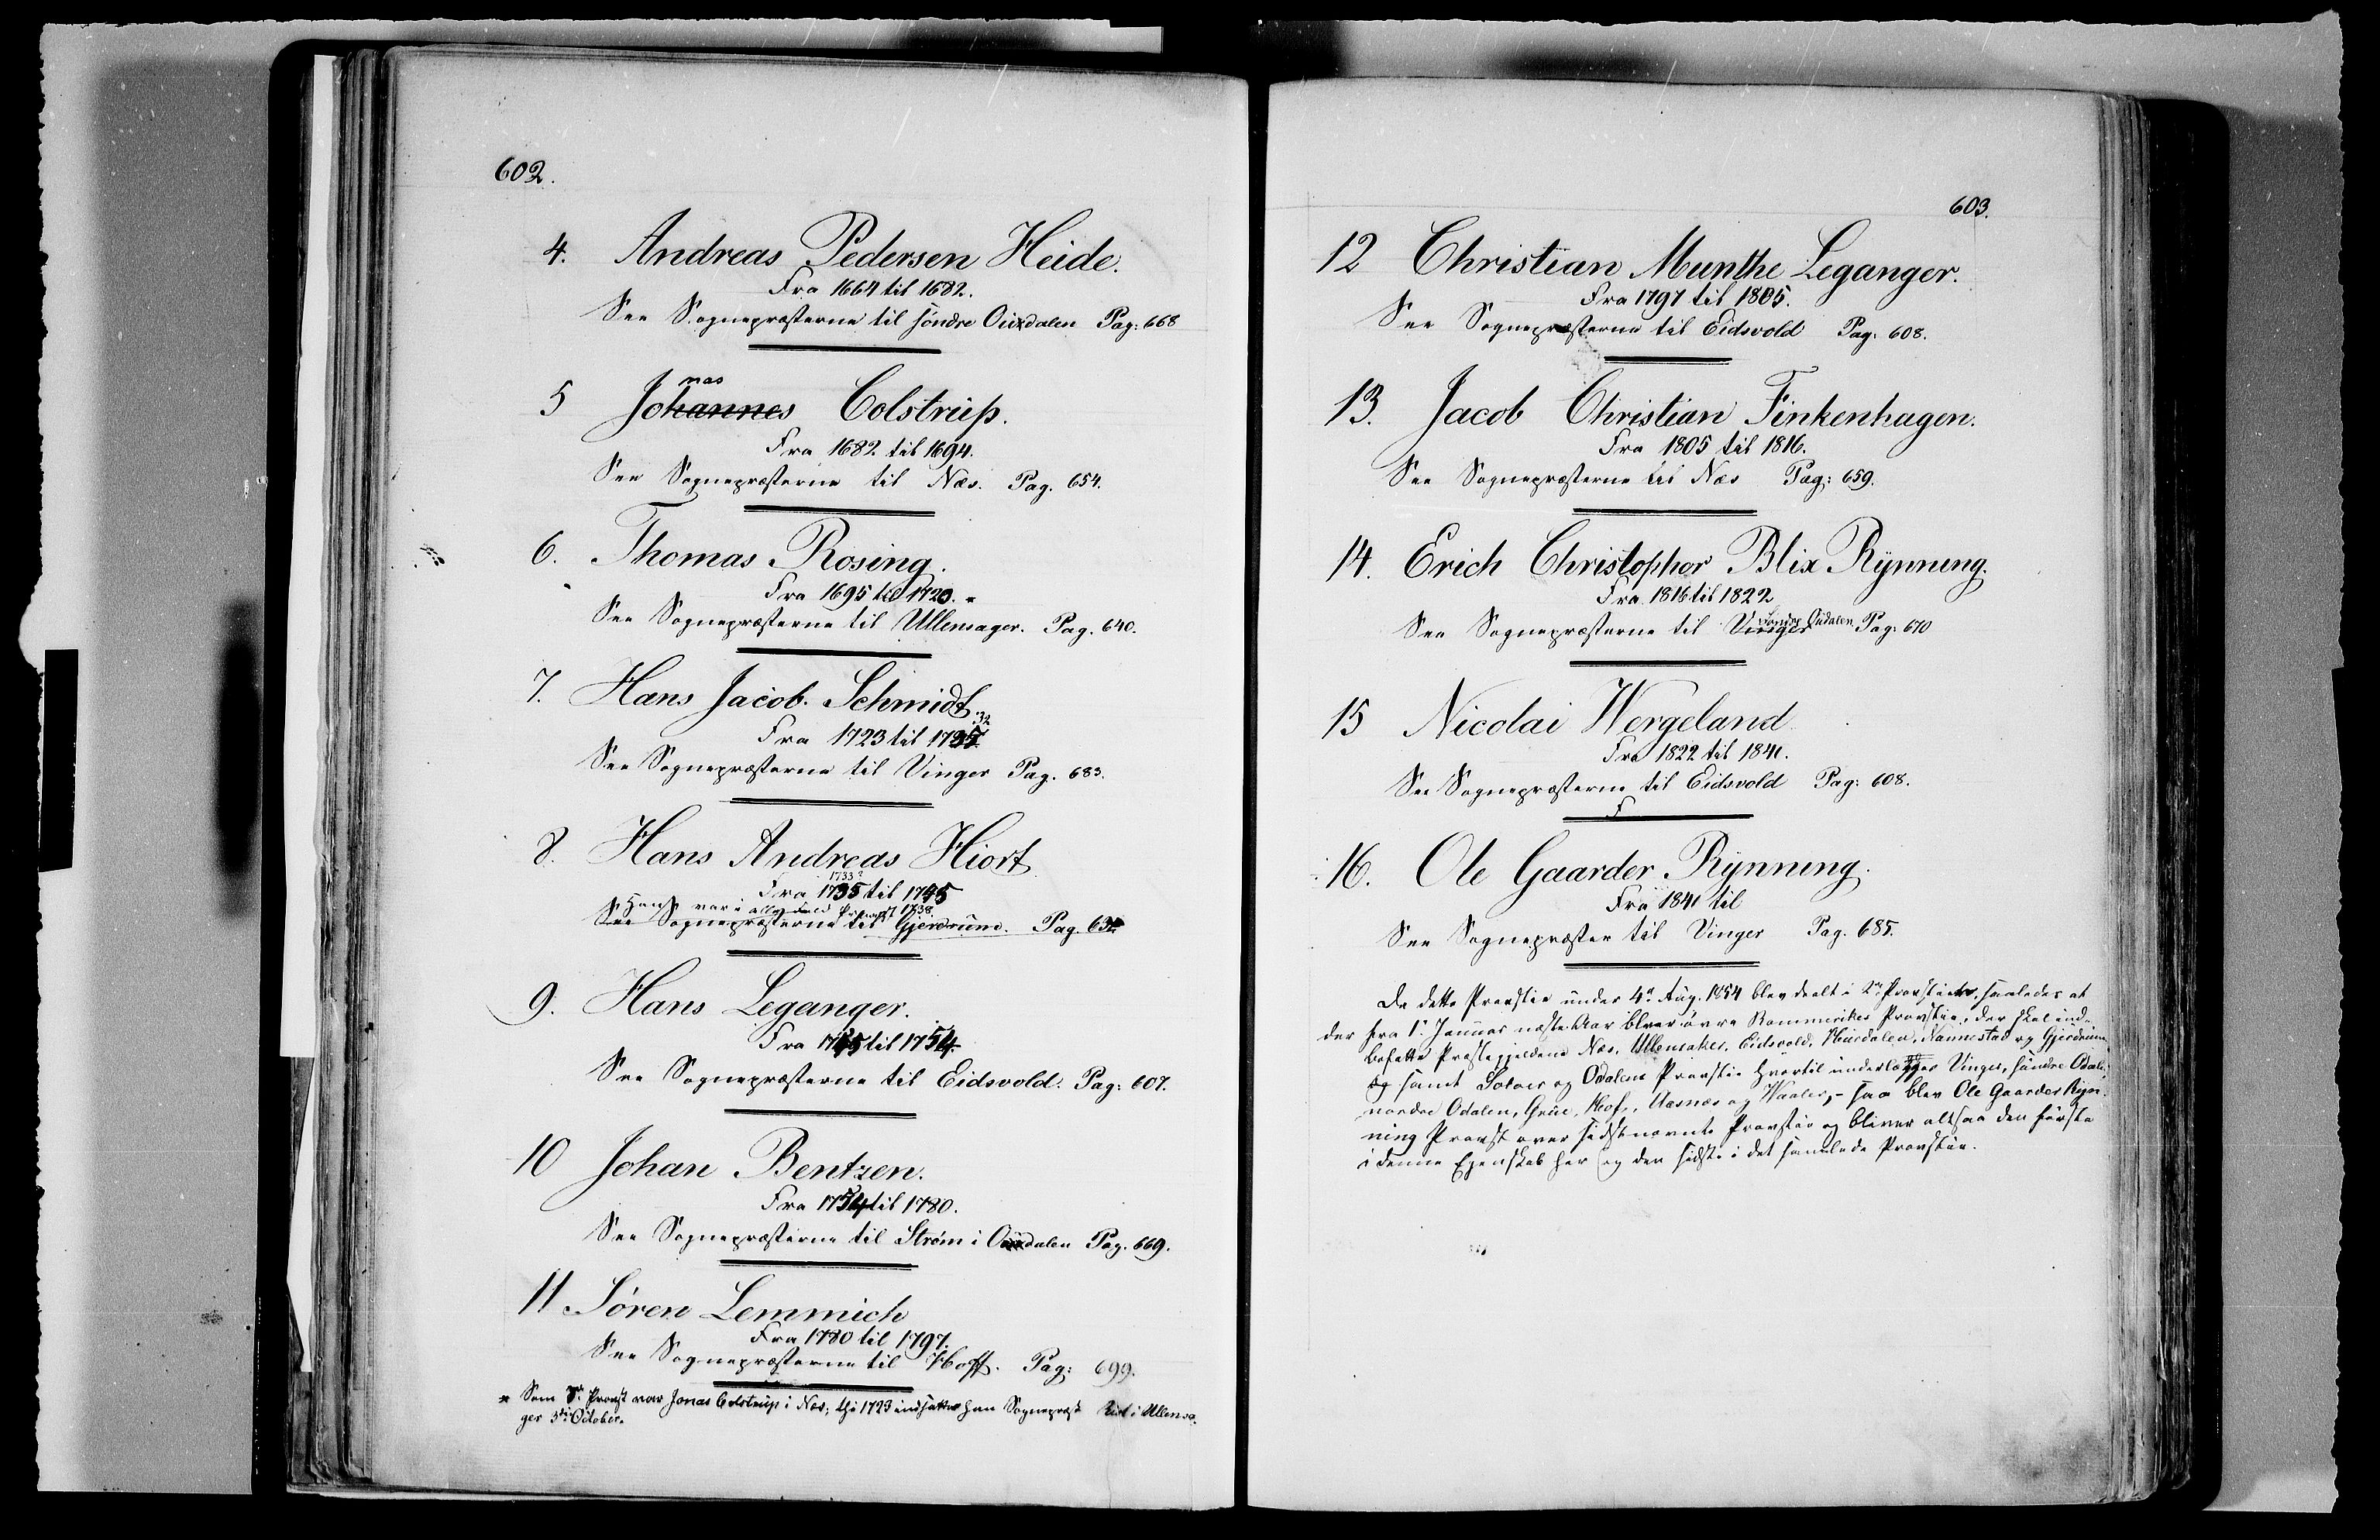 602.
4. Andreas Pedersen Heide.
Fra 1664 til 1682.
See Sognepræsterne til söndre Oudalen Pag: 668
nas
5 Johannes Colstrup.
Fra 1682 til 1694.
See Sognepræsterne til Næs. Pag. 654.
6. Thomas Rosing.
Fra 1695 til 1723. *
See Sognepræsterne til Ullensager. Pag. 640.
7. Hans Jacob Schmidt.
32
Fra 1723 til 1735
See Sognepræsterne til Vinger Pag. 683.
8. Hans Andreas Hiort
1733?
Fra 1735 til 1745
Han var i alle Fald Provst 1738.
See Sognepræsterne til Gjerdrum. Pag. 632
9. Hans Leganger.
Fra 1745 til 1754.
See Sognepræsterne til Eidsvold. Pag: 607.
10 Johan Bentzen.
Fra 1754 til 1780.
See Sognepræsterne til Strøm i Oudalen Pag. 669.
11 Sören Lemmich
Fra 1780 til 1797.
See Sognepræsterne til Hoff. Pag: 699.
* Som Provst var Jonas Colstrup i Næs; thi 1723 indsatte han Sognepræst i Ullensa-
ger 5te October.
603.
12 Christian Munthe Leganger.
Fra 1797 til 1805.
See Sognepræsterne til Eidsvold Pag. 608.
13. Jacob Christian Finkenhagen.
Fra 1805 til 1816.
See Sognepræsterne til Næs Pag: 659.
14. Erich Christopher Blix Rÿnning.
Fra 1816 til 1822
söndre Oudalen
See Sognepræsterne til Vinger Pag: 670
15 Nicolai Wergeland
Fra 1822 til 1841.
See Sognepræsterne til Eidsvold Pag: 608.
16. Ole Gaarder Rÿnning.
Fra 1841 til
See Sognepræsten til Vinger Pag. 685.
Da dette Provstie under 4de Aug. 1854 blev deelt i 2de Provstier, saaledes at
der fra 1ste Januar næste Aar bliver övre Rommerikes Provstie, der skal ind-
befatte Præstegjeldene Næs, Ullensaker, Eidsvold, Hurdalen, Nannestad og Gjerdrum
og samt Soloer og Odalens Provstie hvortil underlægges Vinger, söndre Odalen,
nordre Odalen, Grue, Hof, Aasnæs og Vaaler, - saa blev Ole Gaarder Ryn-
ning Provst over sidstnævnte Provstie og bliver altsaa den første
i denne Egenskab her og den sidste i det samlede Provstie.